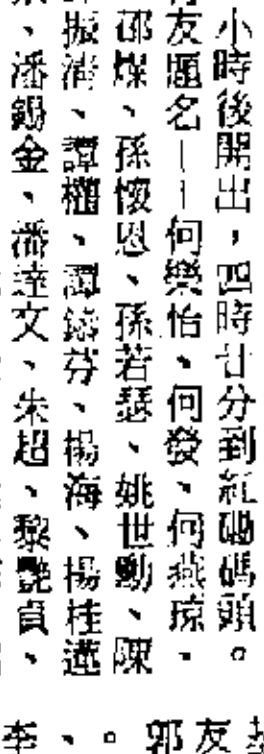 小時後開出，四時廿分到紅磡碼頭。
友題名——何樂怡、何發、何燕琼、
邵燦、孫懷恩、孫若瑟、姚世勳、陳
振清、譚櫂、譚錦芬、楊海、楊桂蓮
、潘錫金、潘達文、朱超、黎艷貞、
郭友
李、。